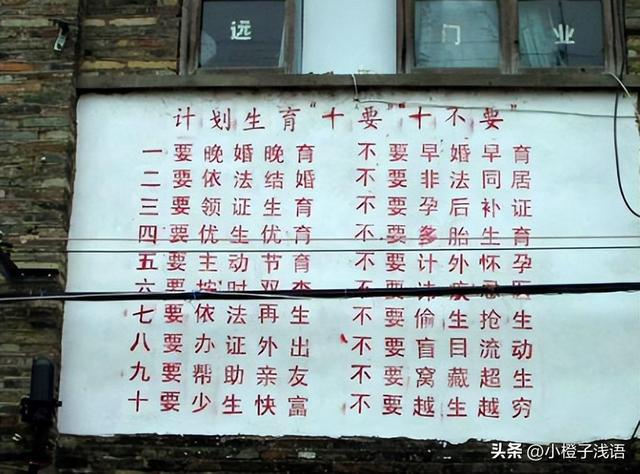 远 门 业
计划生育“十要”“十不要”
一要晚婚晚育 不要早婚早育
二要依法结婚 不要非法同居
三要领证生育 不要孕后补证
四要优生优育 不要多胎生育
五要主动节育 不要计外怀孕
六要按时双查 不要讳疾忌医
七要依法再生 不要偷生抢生
八要办证外出 不要盲目流动
九要帮助亲友 不要窝藏超生
十要少生快富 不要越生越穷
头条 @小橙子浅语